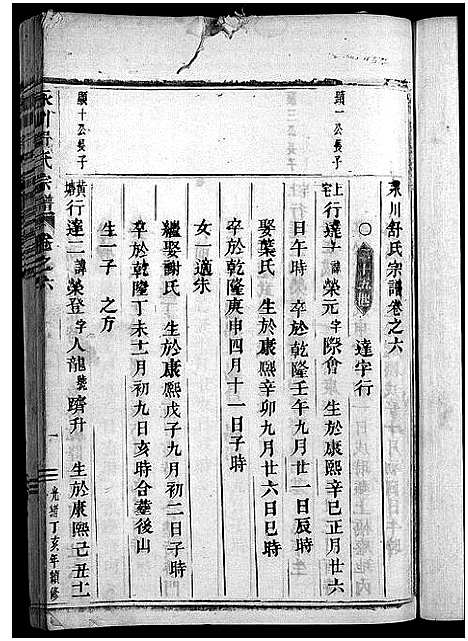 永川舒氏宗譜卷之六
達字行
顕一公長子
上宅行達一諱榮元字際會 生於康熙辛巳正月廿六
日午時 卒於乾隆壬午九月廿一日辰時
娶葉氏 生於康熙辛卯九月廿六日巳時
卒於乾隆庚申四月十一日子時
女一適朱
繼娶謝氏 生於康熙戊子九月初二日子時
卒於乾隆丁未十一月初九日亥時合塟後山
生一子 之方
顕十公長子
行達二諱榮登字人龍號躋升 生於康熙己丑十一
永川舒氏宗譜 卷之六
一
光緒丁亥年續修